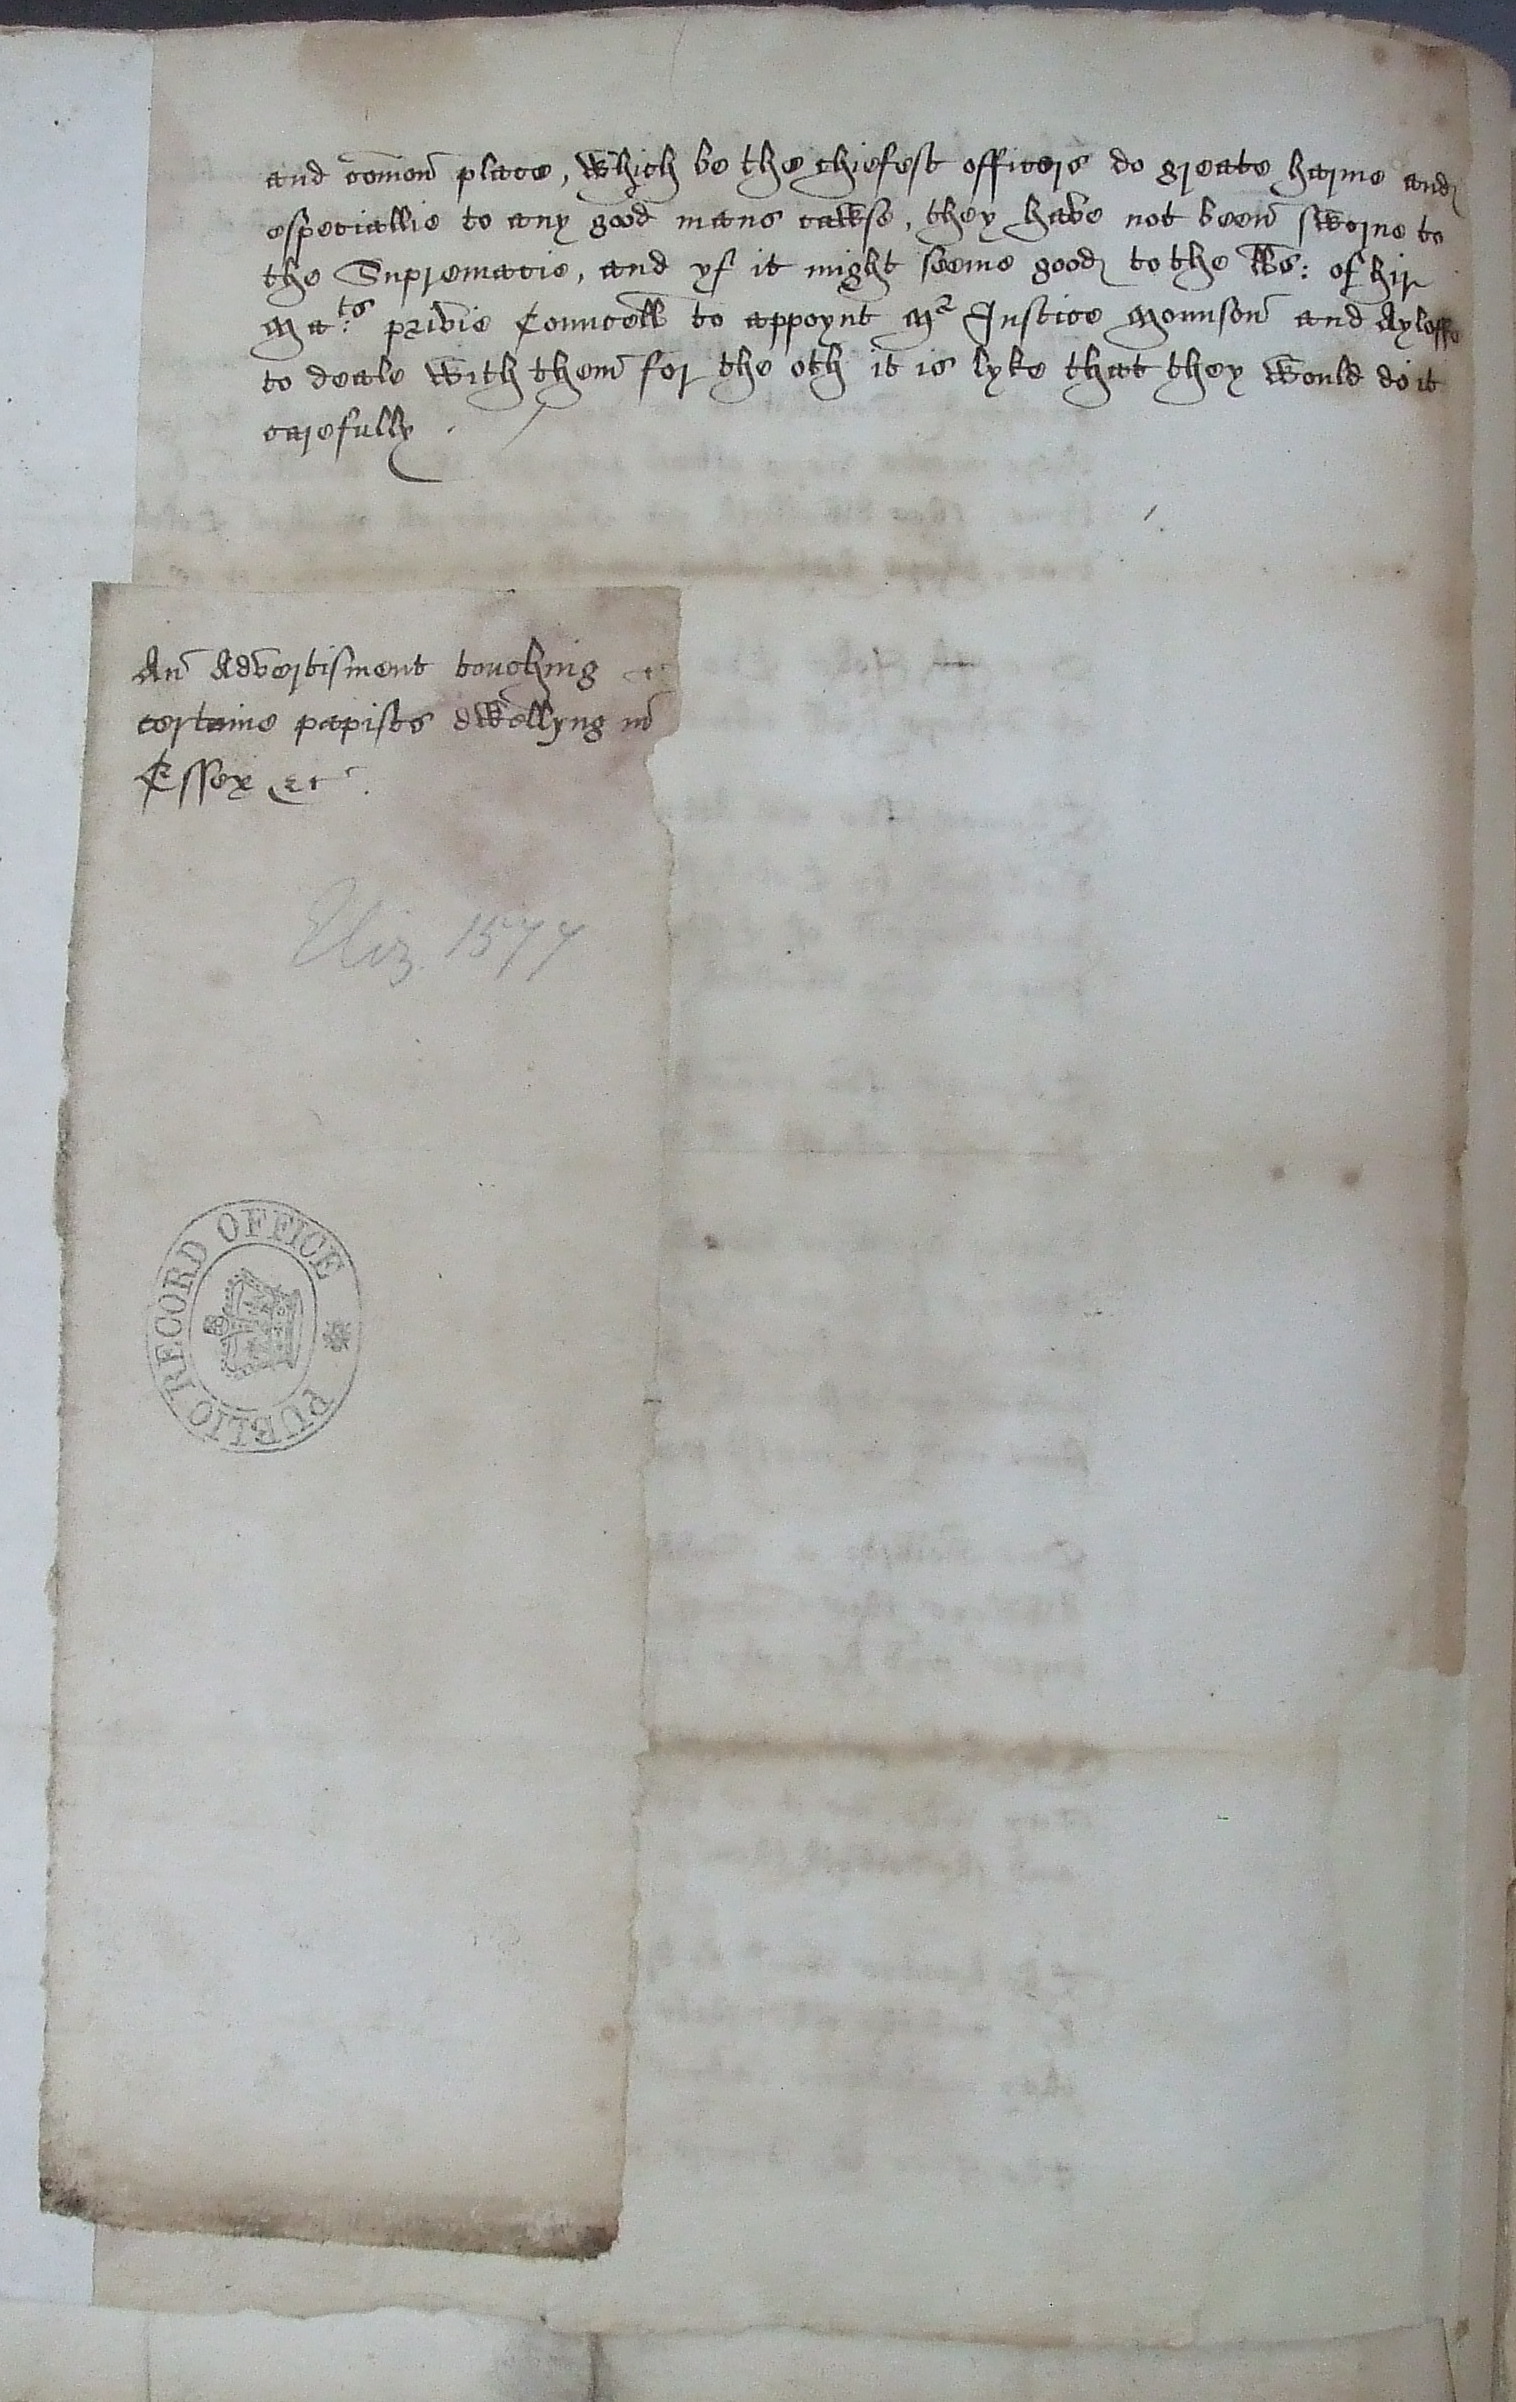 and comon place, which be the chiefest officers do greate harme and
especiallie to any good mans cawse, they have not been sworne to
the Supremacie, and yf it might seeme good to the LLs: of hir
Ma:ts privie Councell to appoynt Mr Justice Mounson and Ayloffe
to deale with them for the oth it is lyke that they would do it
carefully.
An Advertisment touching
certaine papists dwellyng in
Essex etc.
Eliz. 1577
PUBLIC RECORD OFFICE